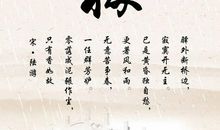 驿外断桥边，
寂寞开无主。
已是黄昏独自愁，
更著风和雨。
无意苦争春，
一任群芳妒。
零落成泥碾作尘，
只有香如故。
宋·陆游